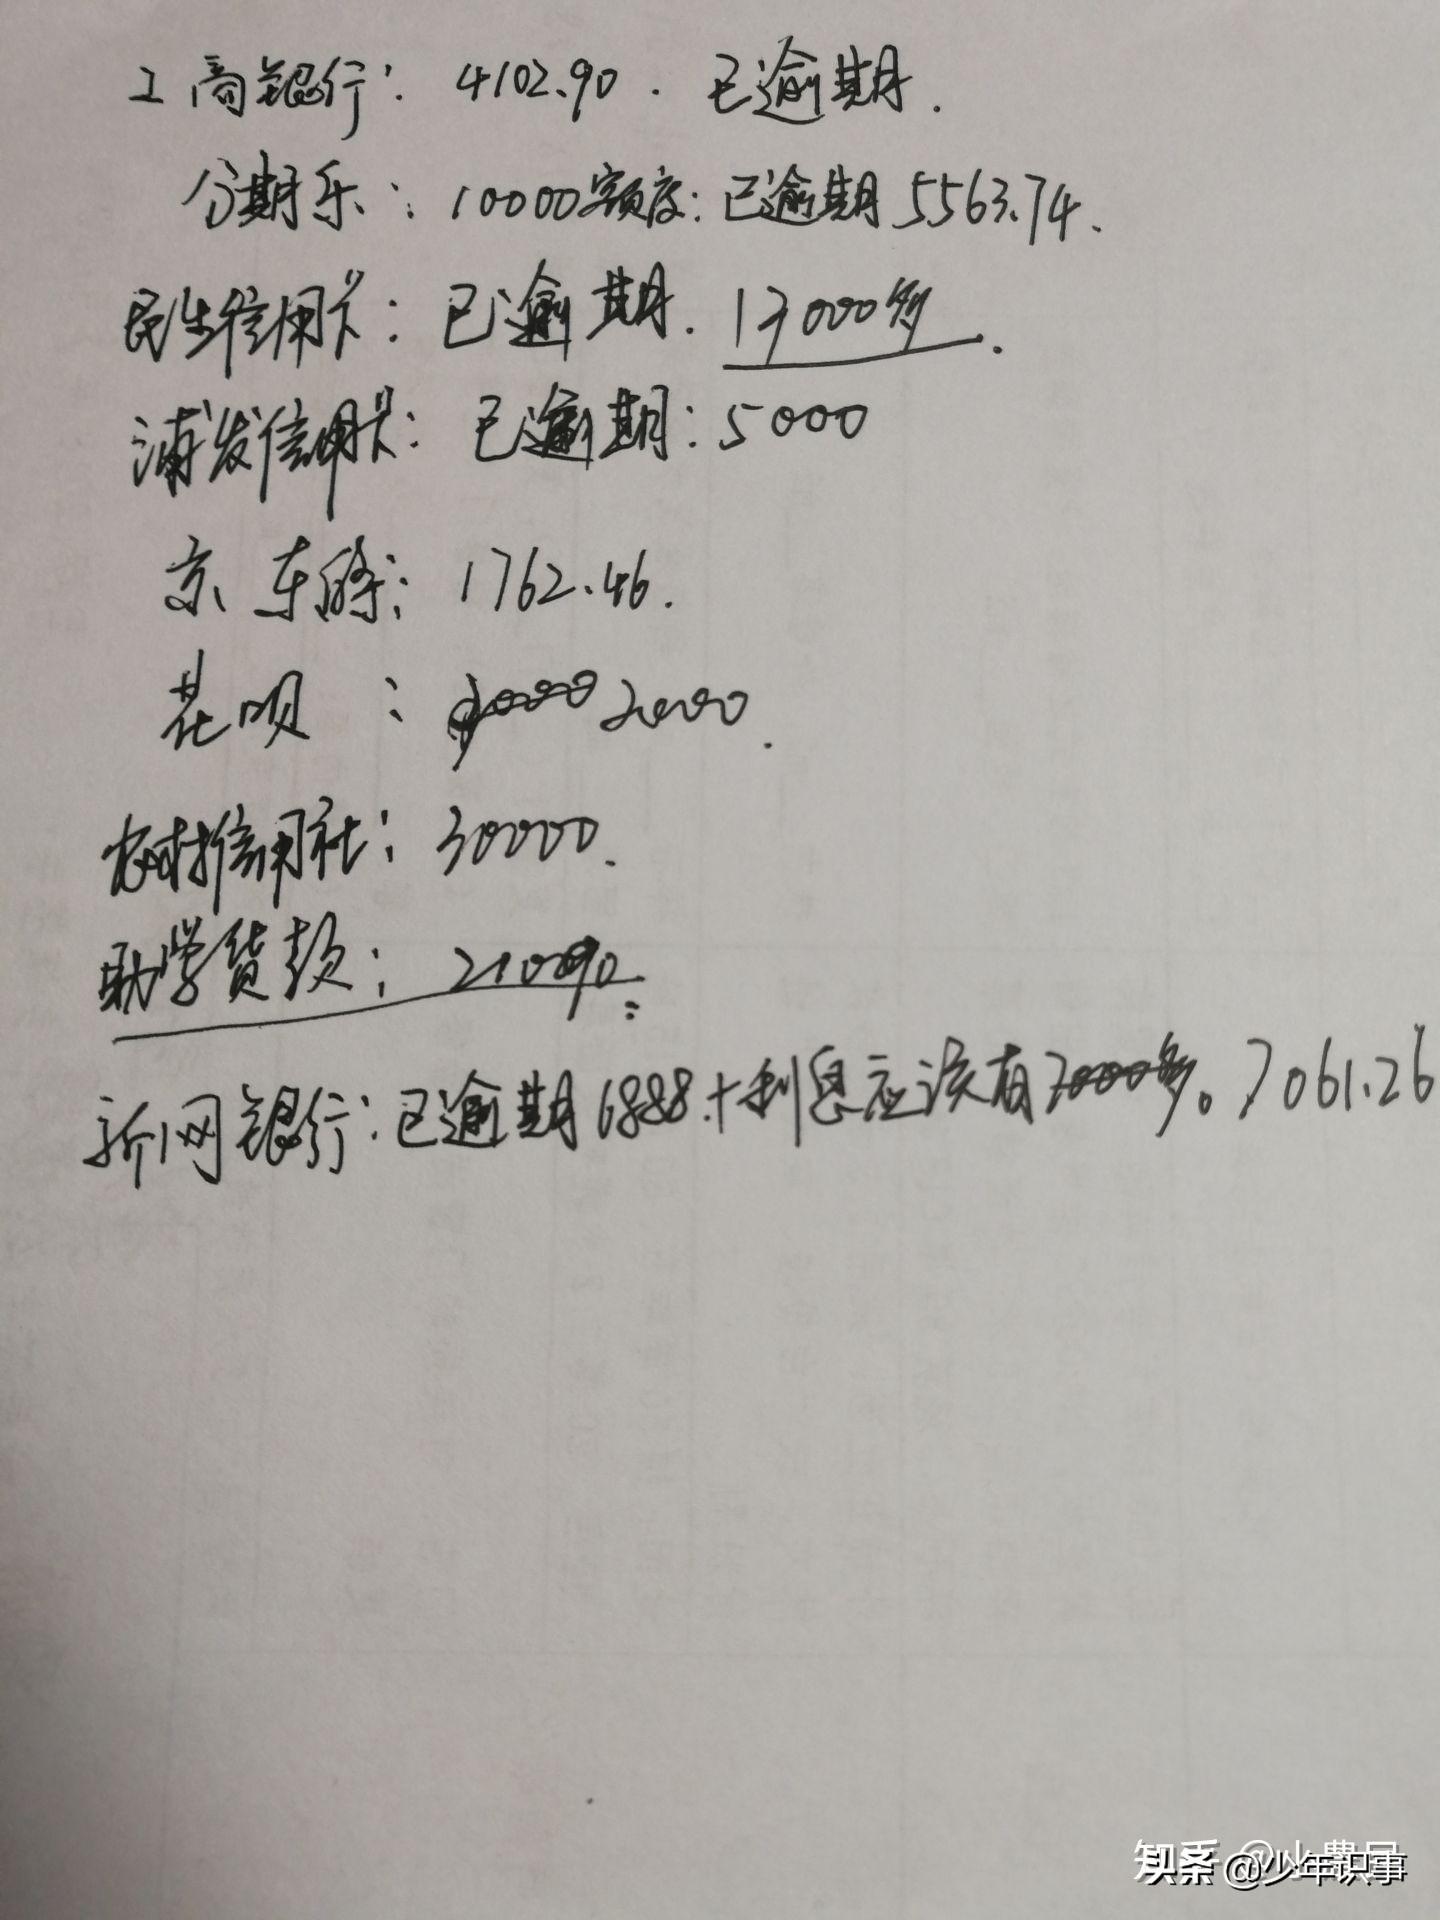 工商银行: 4102.90. 已逾期.
分期乐: 10000额度: 已逾期5563.74.
民生信用卡: 已逾期. 13000多.
浦发信用卡: 已逾期: 5000
京东: 1762.46.
花呗: 2000.
农村信用社: 30000.
助学贷款:
新网银行: 已逾期6888.+利息应该有7000多。7061.26
知乎
头条 @少年识事